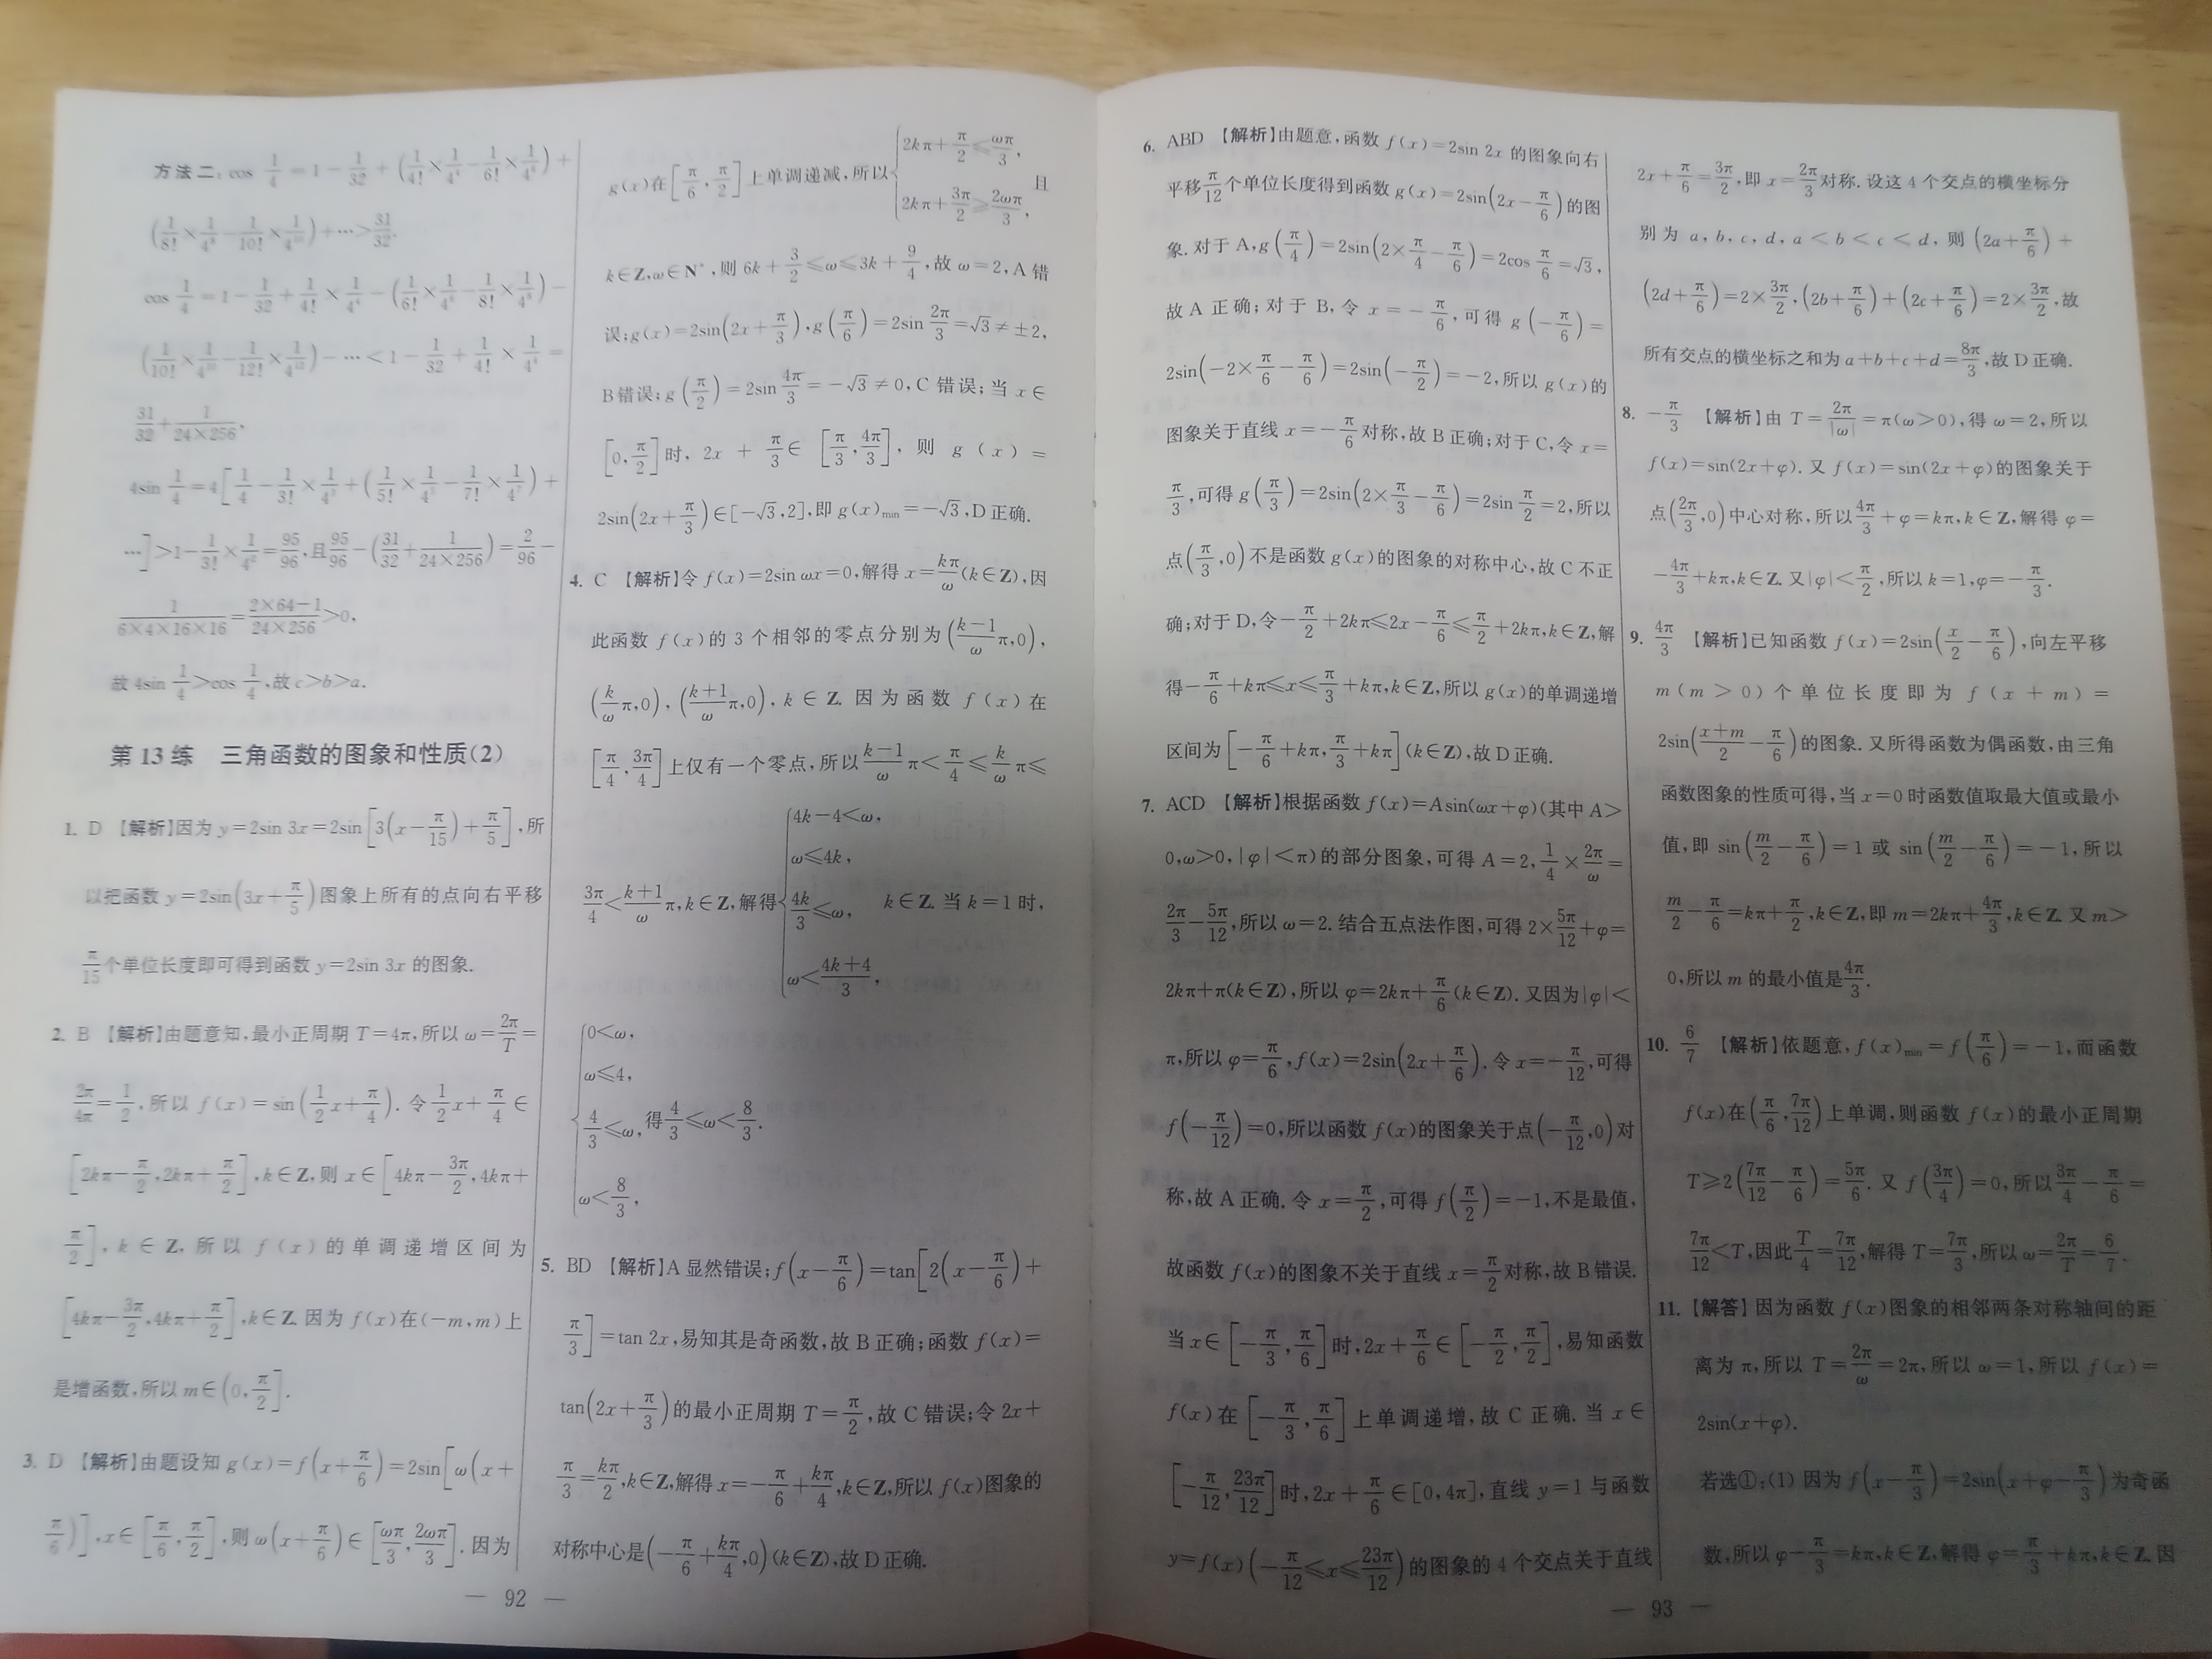 方法二: cos 1/4 = 1 - 1/32 + (1/4! × 1/4⁴ - 1/6! × 1/4⁶) +
(1/8! × 1/4⁸ - 1/10! × 1/4¹⁰) + ⋯ > 31/32.
cos 1/4 = 1 - 1/32 + 1/4! × 1/4⁴ - (1/6! × 1/4⁶ - 1/8! × 1/4⁸) -
(1/10! × 1/4¹⁰ - 1/12! × 1/4¹²) - ⋯ < 1 - 1/32 + 1/4! × 1/4⁴ =
31/32 + 1/(24×256),
4sin 1/4 = 4[1/4 - 1/3! × 1/4³ + (1/5! × 1/4⁵ - 1/7! × 1/4⁷) +
⋯] > 1 - 1/3! × 1/4² = 95/96, 且 95/96 - (31/32 + 1/(24×256)) = 2/96 -
1/(6×4×16×16) = (2×64-1)/(24×256) > 0,
故 4sin 1/4 > cos 1/4, 故 c>b>a.
第 13 练 三角函数的图象和性质(2)
1. D 【解析】因为 y=2sin 3x=2sin[3(x-π/15)+π/5], 所
以把函数 y=2sin(3x+π/5)图象上所有的点向右平移
π/15个单位长度即可得到函数 y=2sin 3x 的图象.
2. B 【解析】由题意知,最小正周期 T=4π,所以 ω=2π/T=
2π/4π=1/2,所以 f(x)=sin(1/2x+π/4). 令 1/2x+π/4∈
[2kπ-π/2,2kπ+π/2],k∈Z,则 x∈[4kπ-3π/2,4kπ+
π/2],k∈Z,所以 f(x)的单调递增区间为
[4kπ-3π/2,4kπ+π/2],k∈Z. 因为 f(x)在(-m,m)上
是增函数,所以 m∈(0,π/2].
3. D 【解析】由题设知 g(x)=f(x+π/6)=2sin[ω(x+
π/6)],x∈[π/6,π/2],则 ω(x+π/6)∈[ωπ/3,2ωπ/3]. 因为
— 92 —
g(x)在[π/6,π/2]上单调递减,所以{2kπ+π/2≤ωπ/3, 2kπ+3π/2≥2ωπ/3, 且
k∈Z,ω∈N*,则 6k+3/2≤ω≤3k+9/4,故 ω=2,A 错
误;g(x)=2sin(2x+π/3),g(π/6)=2sin 2π/3=√3≠±2,
B 错误;g(π/2)=2sin 4π/3=-√3≠0,C 错误;当 x∈
[0,π/2]时,2x+π/3∈[π/3,4π/3],则 g(x)=
2sin(2x+π/3)∈[-√3,2],即 g(x)min=-√3,D 正确.
4. C 【解析】令 f(x)=2sin ωx=0,解得 x=kπ/ω(k∈Z),因
此函数 f(x)的 3 个相邻的零点分别为((k-1)/ω π,0),
(k/ω π,0),((k+1)/ω π,0),k∈Z. 因为函数 f(x)在
[π/4,3π/4]上仅有一个零点,所以 (k-1)/ω π<π/4≤k/ω π≤
3π/4<(k+1)/ω π,k∈Z,解得{4k-4<ω, ω≤4k, 4k/3≤ω, ω<(4k+4)/3, k∈Z. 当 k=1 时,
{0<ω, ω≤4, 4/3≤ω, ω<8/3, 得 4/3≤ω<8/3.
5. BD 【解析】A 显然错误;f(x-π/6)=tan[2(x-π/6)+
π/3]=tan 2x,易知其是奇函数,故 B 正确;函数 f(x)=
tan(2x+π/3)的最小正周期 T=π/2,故 C 错误;令 2x+
π/3=kπ/2,k∈Z,解得 x=-π/6+kπ/4,k∈Z,所以 f(x)图象的
对称中心是(-π/6+kπ/4,0)(k∈Z),故 D 正确.
6. ABD 【解析】由题意,函数 f(x)=2sin 2x 的图象向右
平移π/12个单位长度得到函数 g(x)=2sin(2x-π/6)的图
象. 对于 A,g(π/4)=2sin(2×π/4-π/6)=2cos π/6=√3,
故 A 正确;对于 B,令 x=-π/6,可得 g(-π/6)=
2sin(-2×π/6-π/6)=2sin(-π/2)=-2,所以 g(x)的
图象关于直线 x=-π/6对称,故 B 正确;对于 C,令 x=
π/3,可得 g(π/3)=2sin(2×π/3-π/6)=2sin π/2=2,所以
点(π/3,0)不是函数 g(x)的图象的对称中心,故 C 不正
确;对于 D,令-π/2+2kπ≤2x-π/6≤π/2+2kπ,k∈Z,解
得-π/6+kπ≤x≤π/3+kπ,k∈Z,所以 g(x)的单调递增
区间为[-π/6+kπ,π/3+kπ](k∈Z),故 D 正确.
7. ACD 【解析】根据函数 f(x)=Asin(ωx+φ)(其中 A>
0,ω>0,|φ|<π)的部分图象,可得 A=2,1/4×2π/ω=
2π/3-5π/12,所以 ω=2. 结合五点法作图,可得 2×5π/12+φ=
2kπ+π(k∈Z),所以 φ=2kπ+π/6(k∈Z). 又因为|φ|<
π,所以 φ=π/6,f(x)=2sin(2x+π/6). 令 x=-π/12,可得
f(-π/12)=0,所以函数 f(x)的图象关于点(-π/12,0)对
称,故 A 正确. 令 x=π/2,可得 f(π/2)=-1,不是最值,
故函数 f(x)的图象不关于直线 x=π/2对称,故 B 错误.
当 x∈[-π/3,π/6]时,2x+π/6∈[-π/2,π/2],易知函数
f(x)在[-π/3,π/6]上单调递增,故 C 正确. 当 x∈
[-π/12,23π/12]时,2x+π/6∈[0,4π],直线 y=1 与函数
y=f(x)(-π/12≤x≤23π/12)的图象的 4 个交点关于直线
— 93 —
2x+π/6=3π/2,即 x=2π/3对称. 设这 4 个交点的横坐标分
别为 a,b,c,d,a<b<c<d,则(2a+π/6)+
(2d+π/6)=2×3π/2,(2b+π/6)+(2c+π/6)=2×3π/2,故
所有交点的横坐标之和为 a+b+c+d=8π/3,故 D 正确.
8. -π/3 【解析】由 T=2π/|ω|=π(ω>0),得 ω=2,所以
f(x)=sin(2x+φ). 又 f(x)=sin(2x+φ)的图象关于
点(2π/3,0)中心对称,所以4π/3+φ=kπ,k∈Z,解得 φ=
-4π/3+kπ,k∈Z. 又|φ|<π/2,所以 k=1,φ=-π/3.
9. 4π/3 【解析】已知函数 f(x)=2sin(x/2-π/6),向左平移
m(m>0)个单位长度即为 f(x+m)=
2sin((x+m)/2-π/6)的图象. 又所得函数为偶函数,由三角
函数图象的性质可得,当 x=0 时函数值取最大值或最小
值,即 sin(m/2-π/6)=1 或 sin(m/2-π/6)=-1,所以
m/2-π/6=kπ+π/2,k∈Z,即 m=2kπ+4π/3,k∈Z. 又 m>
0,所以 m 的最小值是4π/3.
10. 6/7 【解析】依题意,f(x)min=f(π/6)=-1,而函数
f(x)在(π/6,7π/12)上单调,则函数 f(x)的最小正周期
T≥2(7π/12-π/6)=5π/6. 又 f(3π/4)=0,所以3π/4-π/6=
7π/12<T,因此T/4=7π/12,解得 T=7π/3,所以 ω=2π/T=6/7.
11. 【解答】因为函数 f(x)图象的相邻两条对称轴间的距
离为 π,所以 T=2π/ω=2π,所以 ω=1,所以 f(x)=
2sin(x+φ).
若选①:(1) 因为 f(x-π/3)=2sin(x+φ-π/3)为奇函
数,所以 φ-π/3=kπ,k∈Z,解得 φ=π/3+kπ,k∈Z. 因